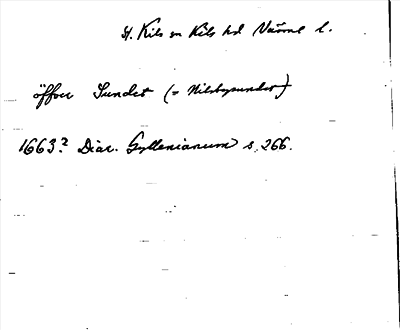 St. Kils sn Kils hd Värml l.
öffver Sundet (= Nilsbysundet)
1663? Diar. Gyllenianum s. 266.